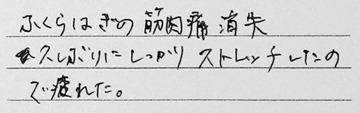 ふくらはぎの筋肉痛消失
久しぶりにしっかりストレッチしたの
で疲れた。